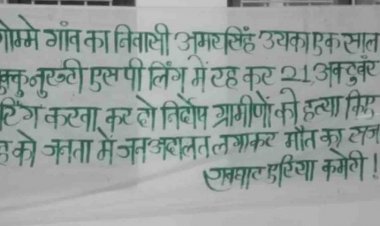 गोम्मे गांव का निवासी अमरसिंह उयका एक साल
एस पी लिंग में रह कर 21, अक्टुबर
करवा कर दो निर्दोष ग्रामीणों की हत्या किए
को जनता में जन अदालत लगाकर मौत का सज
एरिया कमेटी !